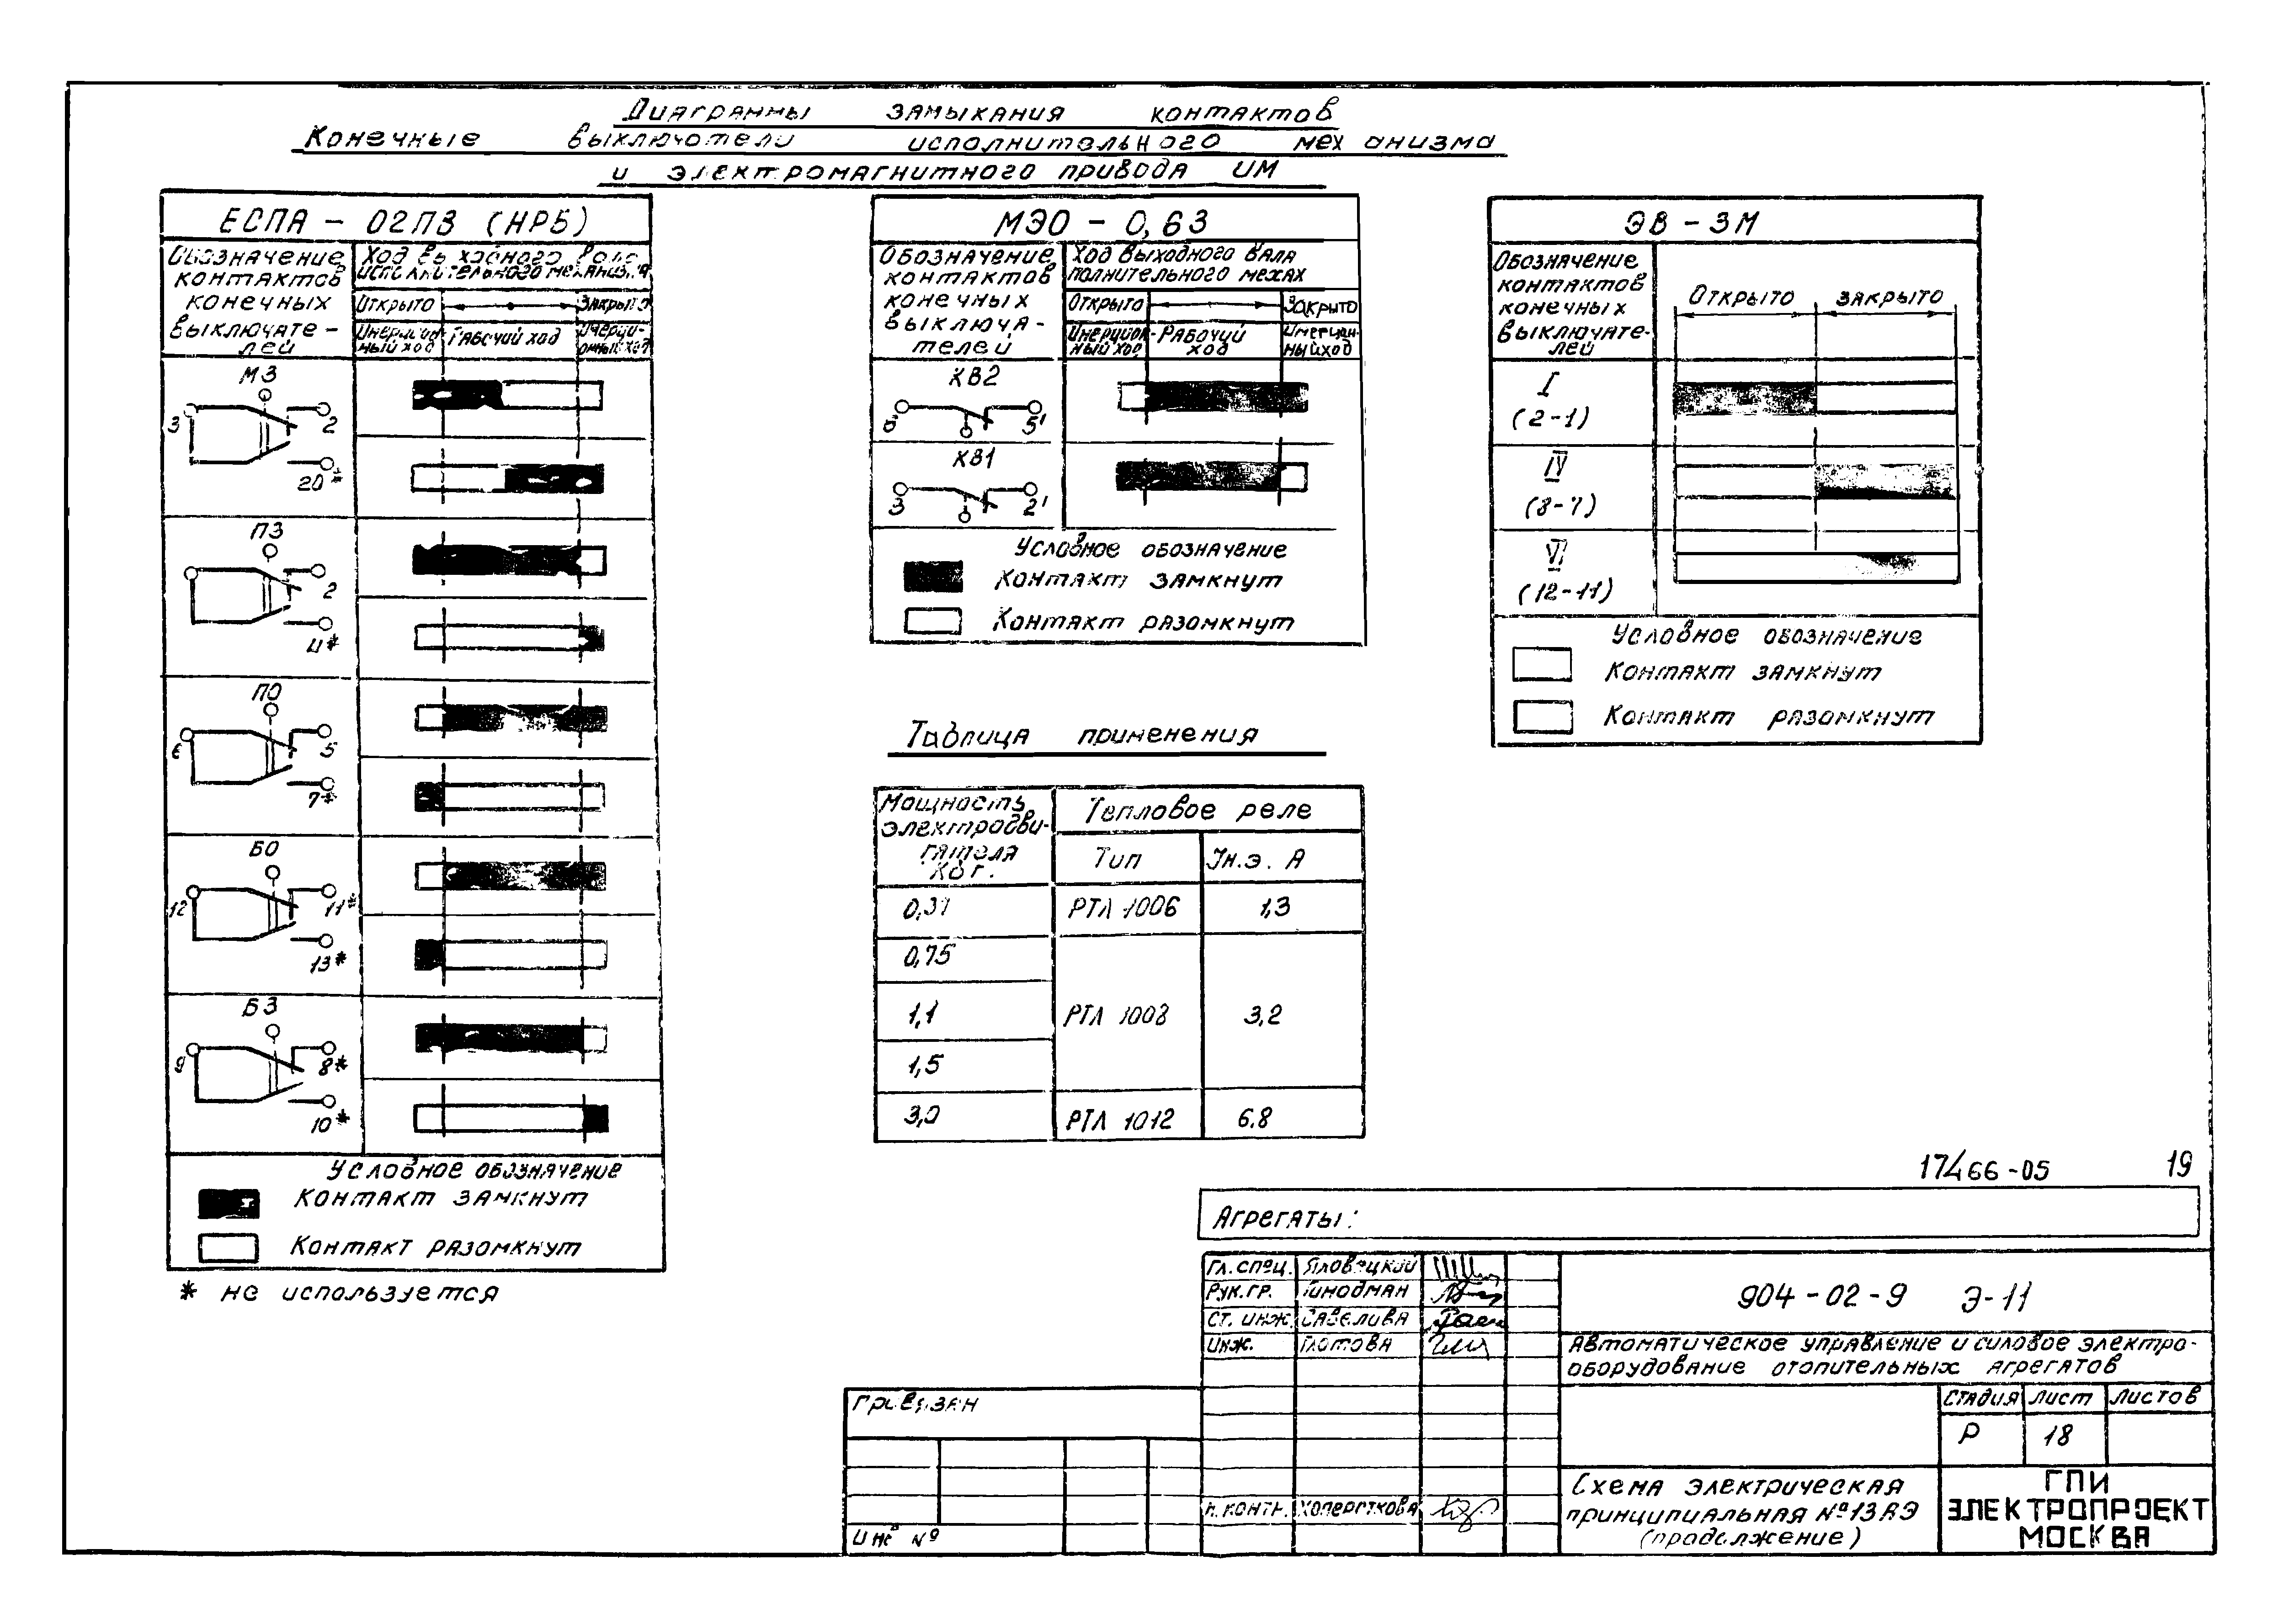 Диаграммы замыкания контактов
Конечные выключатели исполнительного механизма
и электромагнитного привода ИМ
ЕСПА - 02ПВ (НРБ)
Обозначение
контактов
конечных
выключате-
лей
Ход выходного вала
исполнительного механизма
Открыто
Закрыто
Инерцион-
ный ход
Рабочий ход
Инерци-
онный ход
МЗ
3
2
20*
ПЗ
2
4*
ПО
6
5
7*
БО
12
11*
13*
БЗ
9
8*
10*
Условное обозначение
Контакт замкнут
Контакт разомкнут
* не используется
МЭО - 0,63
Обозначение
контактов
конечных
выключа-
телей
Ход выходного вала
полнительного механ
Открыто
Закрыто
Инерцион-
ный ход
Рабочий
ход
Инерцион-
ный ход
КВ2
6
5'
КВ1
3
2'
Условное обозначение
Контакт замкнут
Контакт разомкнут
ЭВ - 3М
Обозначение
контактов
конечных
выключате-
лей
Открыто
Закрыто
I
(2-1)
IV
(8-7)
VI
(12-11)
Условное обозначение
Контакт замкнут
Контакт разомкнут
Таблица применения
Мощность
электродви-
гателя
Тепловое реле
Тип
Iн.э. А
РТЛ 1006
1,3
0,75
1,1
РТЛ 1008
3,2
1,5
3,0
РТЛ 1012
6.8
17466-05
19
Агрегаты:
Гл. спец.
Яловецкий
Рук. гр.
Гинодман
Ст. инж.
Инж.
Глотова
Н. контр.
904-02-9 Э-11
Автоматическое управление и силовое электро-
оборудование отопительных агрегатов
Стадия
Лист
Листов
Р
18
Схема электрическая
принципиальная №13АЭ
(продолжение)
ГПИ
ЭЛЕКТРОПРОЕКТ
МОСКВА
Привязан
Инв №